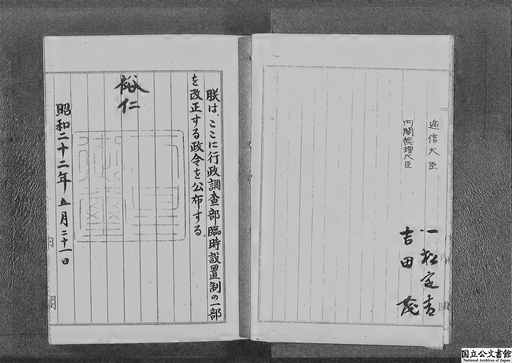 逓信大臣 一松定吉
内閣總理大臣 吉田茂
朕は、ここに行政調査部臨時設置制の一部
を改正する政令を公布する
裕仁
昭和二十二年五月二十一日
内閣
国立公文書館
National Archives of Japan